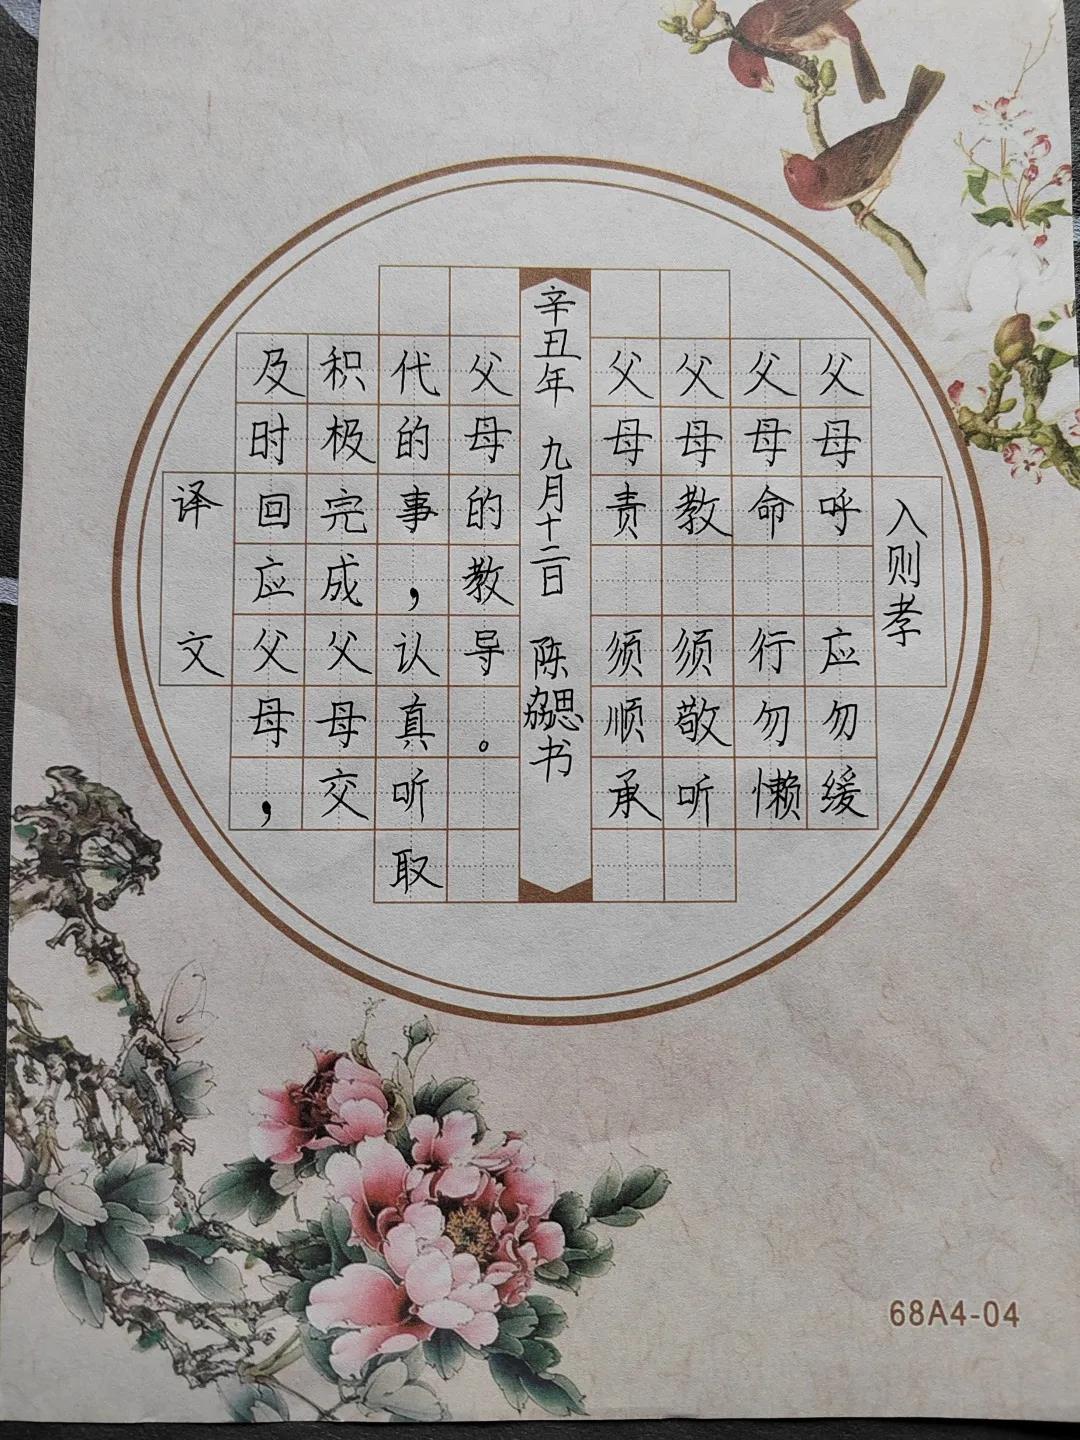 入则孝
父母呼 应勿缓
父母命 行勿懒
父母教 须敬听
父母责 须顺承
辛丑年 九月十二日 陈勰书
译文
及时回应父母，
积极完成父母交
代的事，认真听取
父母的教导。
68A4-04